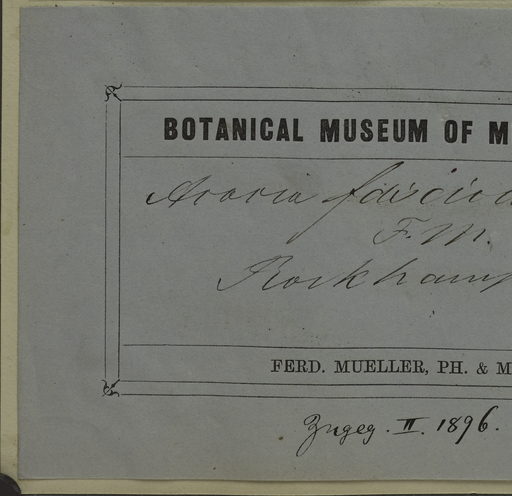 BOTANICAL MUSEUM OF M
Acacia fascicu
F. M.
Rockhamp
FERD. MUELLER, PH. & M
Zugeg. II. 1896.